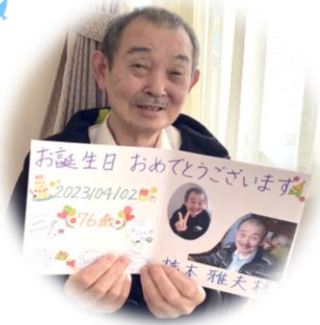 お誕生日 おめでとうございます
2023/04/02
76歳
雅夫